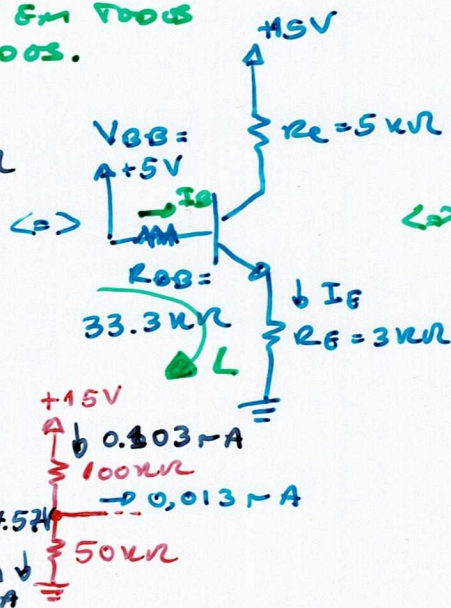 EM TODOS
DOS.
+15V
RC = 5 KΩ
VBB =
+5V
IB
<=>
RBB =
33.3 KΩ
L
IE
RE = 3 KΩ
+15V
0.103 mA
100KΩ
0,013 mA
4.57V
50KΩ
A